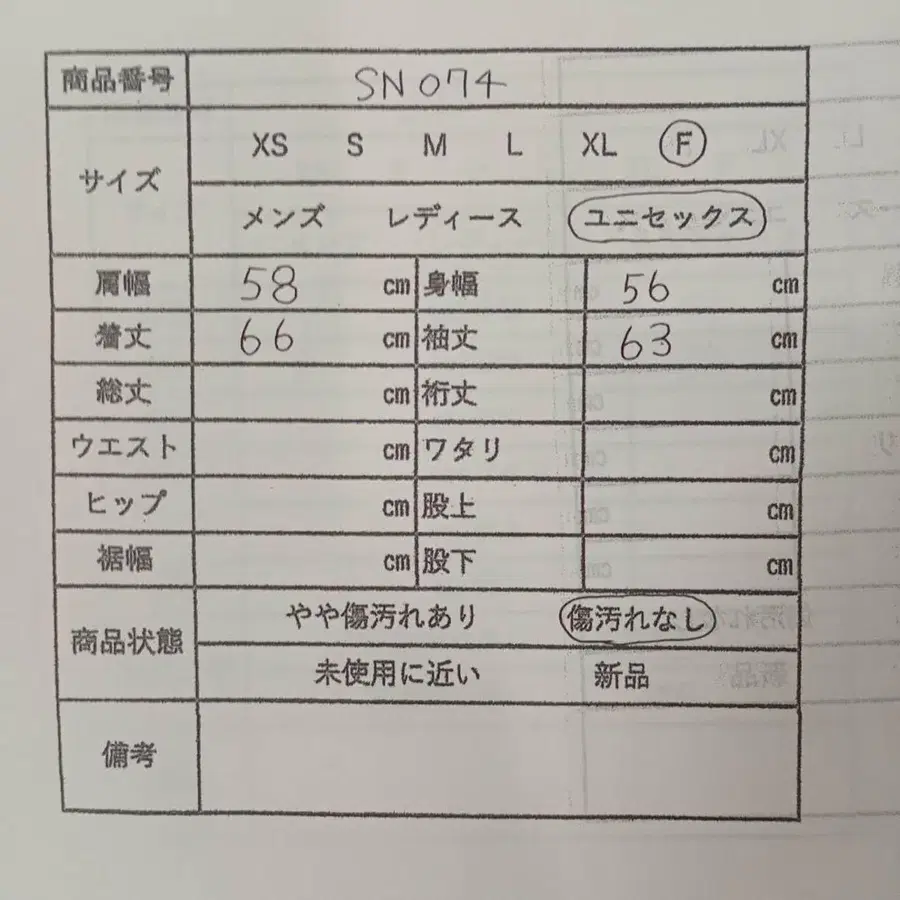 商品番号 SN074
サイズ XS S M L XL F
メンズ レディース ユニセックス
肩幅 58 cm 身幅 56 cm
着丈 66 cm 袖丈 63 cm
総丈 cm 裄丈 cm
ウエスト cm ワタリ cm
ヒップ cm 股上 cm
裾幅 cm 股下 cm
商品状態 やや傷汚れあり 傷汚れなし
未使用に近い 新品
備考